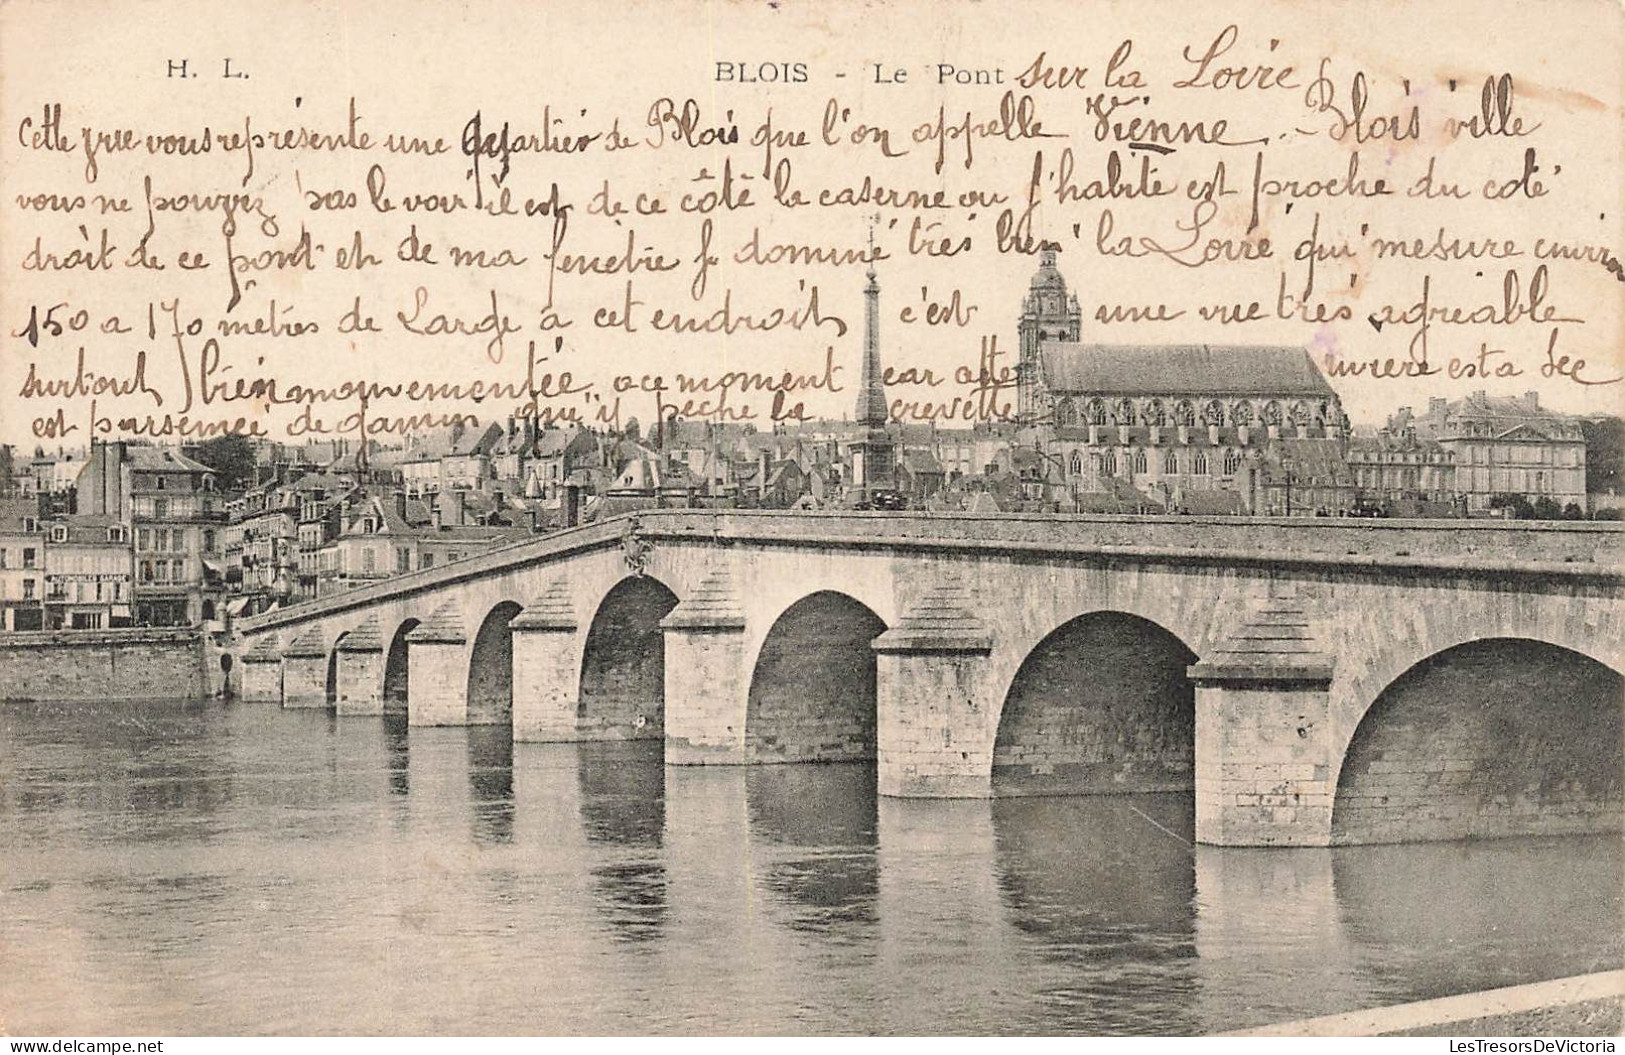 H. L.
BLOIS - Le Pont sur la Loire
Cette vue vous représente une quartier de Blois que l'on appelle Vienne. - Blois ville
vous ne pouvez pas le voir il est de ce côté la caserne ou j'habite est proche du coté
droit de ce pont et de ma fenêtre je domine très bien la Loire qui mesure environ
150 a 170 mètres de Large a cet endroit c'est une vue très agréable
surtout bien mouvementée a ce moment car cette rivière est a sec
est parsemée de gamin qui y pèche la crevette
AUTOMOBILES GARAGE
LesTresorsDeVictoria